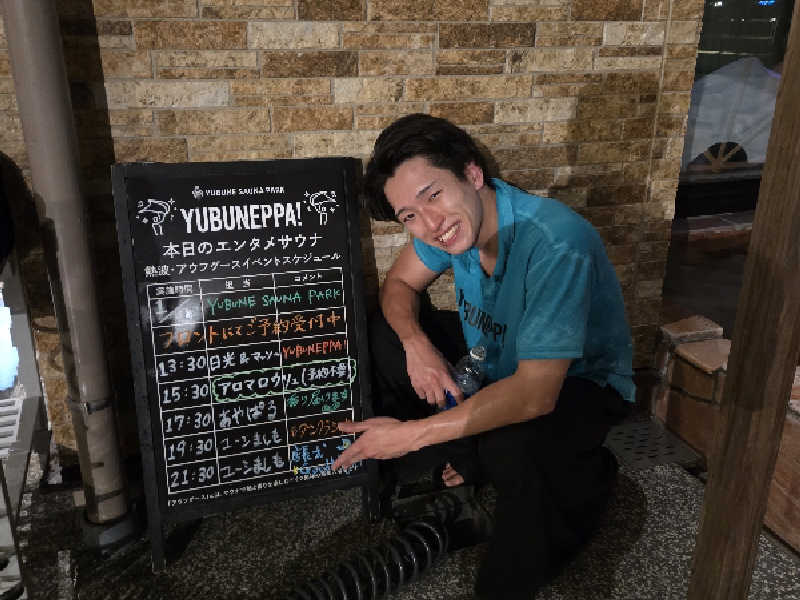 YUBUNE SAUNA PARK
YUBUNEPPA!
本日のエンタメサウナ
熱波・アウフグースイベントスケジュール
実施時間 担当 コメント
YUBUNE SAUNA PARK
フロントにてご予約受付中
13:30 日光 YUBUNEPPA!
15:30 アロマロウリュ(予約不要)
17:30 あやぱる
19:30 コーンましも
21:30 コーンましも
YUBUNEPPA!